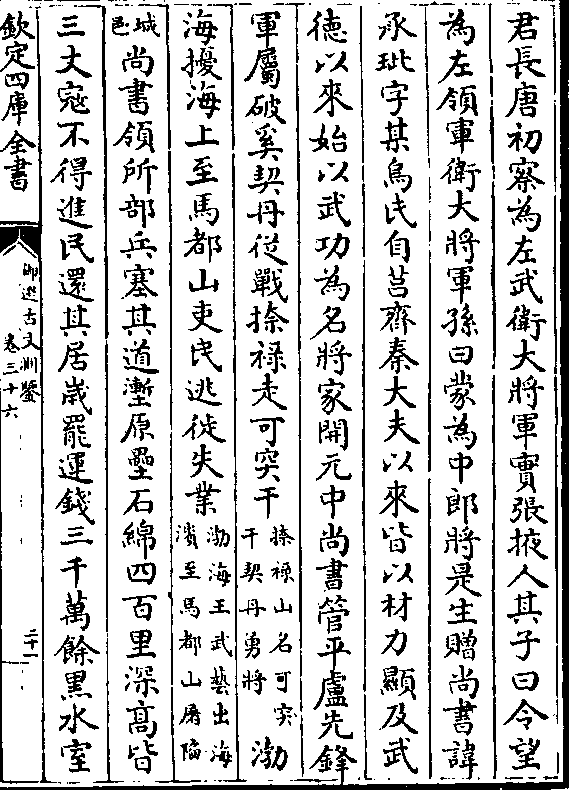 君長唐初察為左武衛大將軍實張掖人其子曰令望
為左領軍衛大將軍孫曰蒙為中郎將是生贈尚書諱
承玼字某烏氏自莒齊秦大夫以來皆以材力顯及武
德以來始以武功為名將家開元中尚書管平盧先鋒
軍屬破奚契丹從戰捺祿走可突干捺祿山名可突干契丹勇將渤
海擾海上至馬都山吏民逃徙失業渤海王武藝出海濱至馬都山屠陷
城邑尚書領所部兵塞其道塹原壘石綿四百里深高皆
三丈寇不得進民還其居歲罷運錢三千萬餘黑水室
欽定四庫全書
御選古文淵鑒
卷三十六
二十一